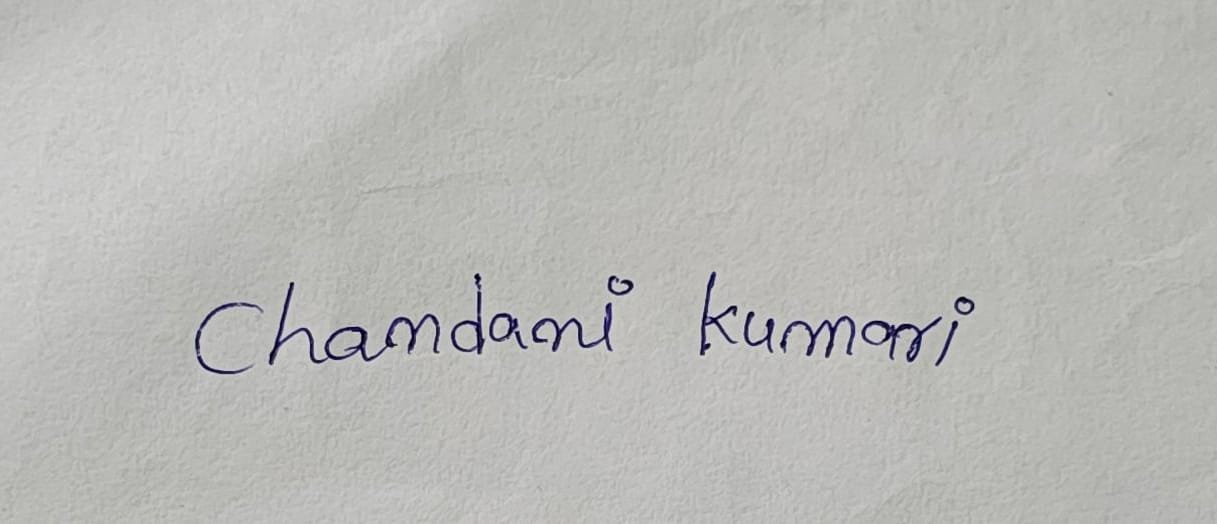 Chandani kumari